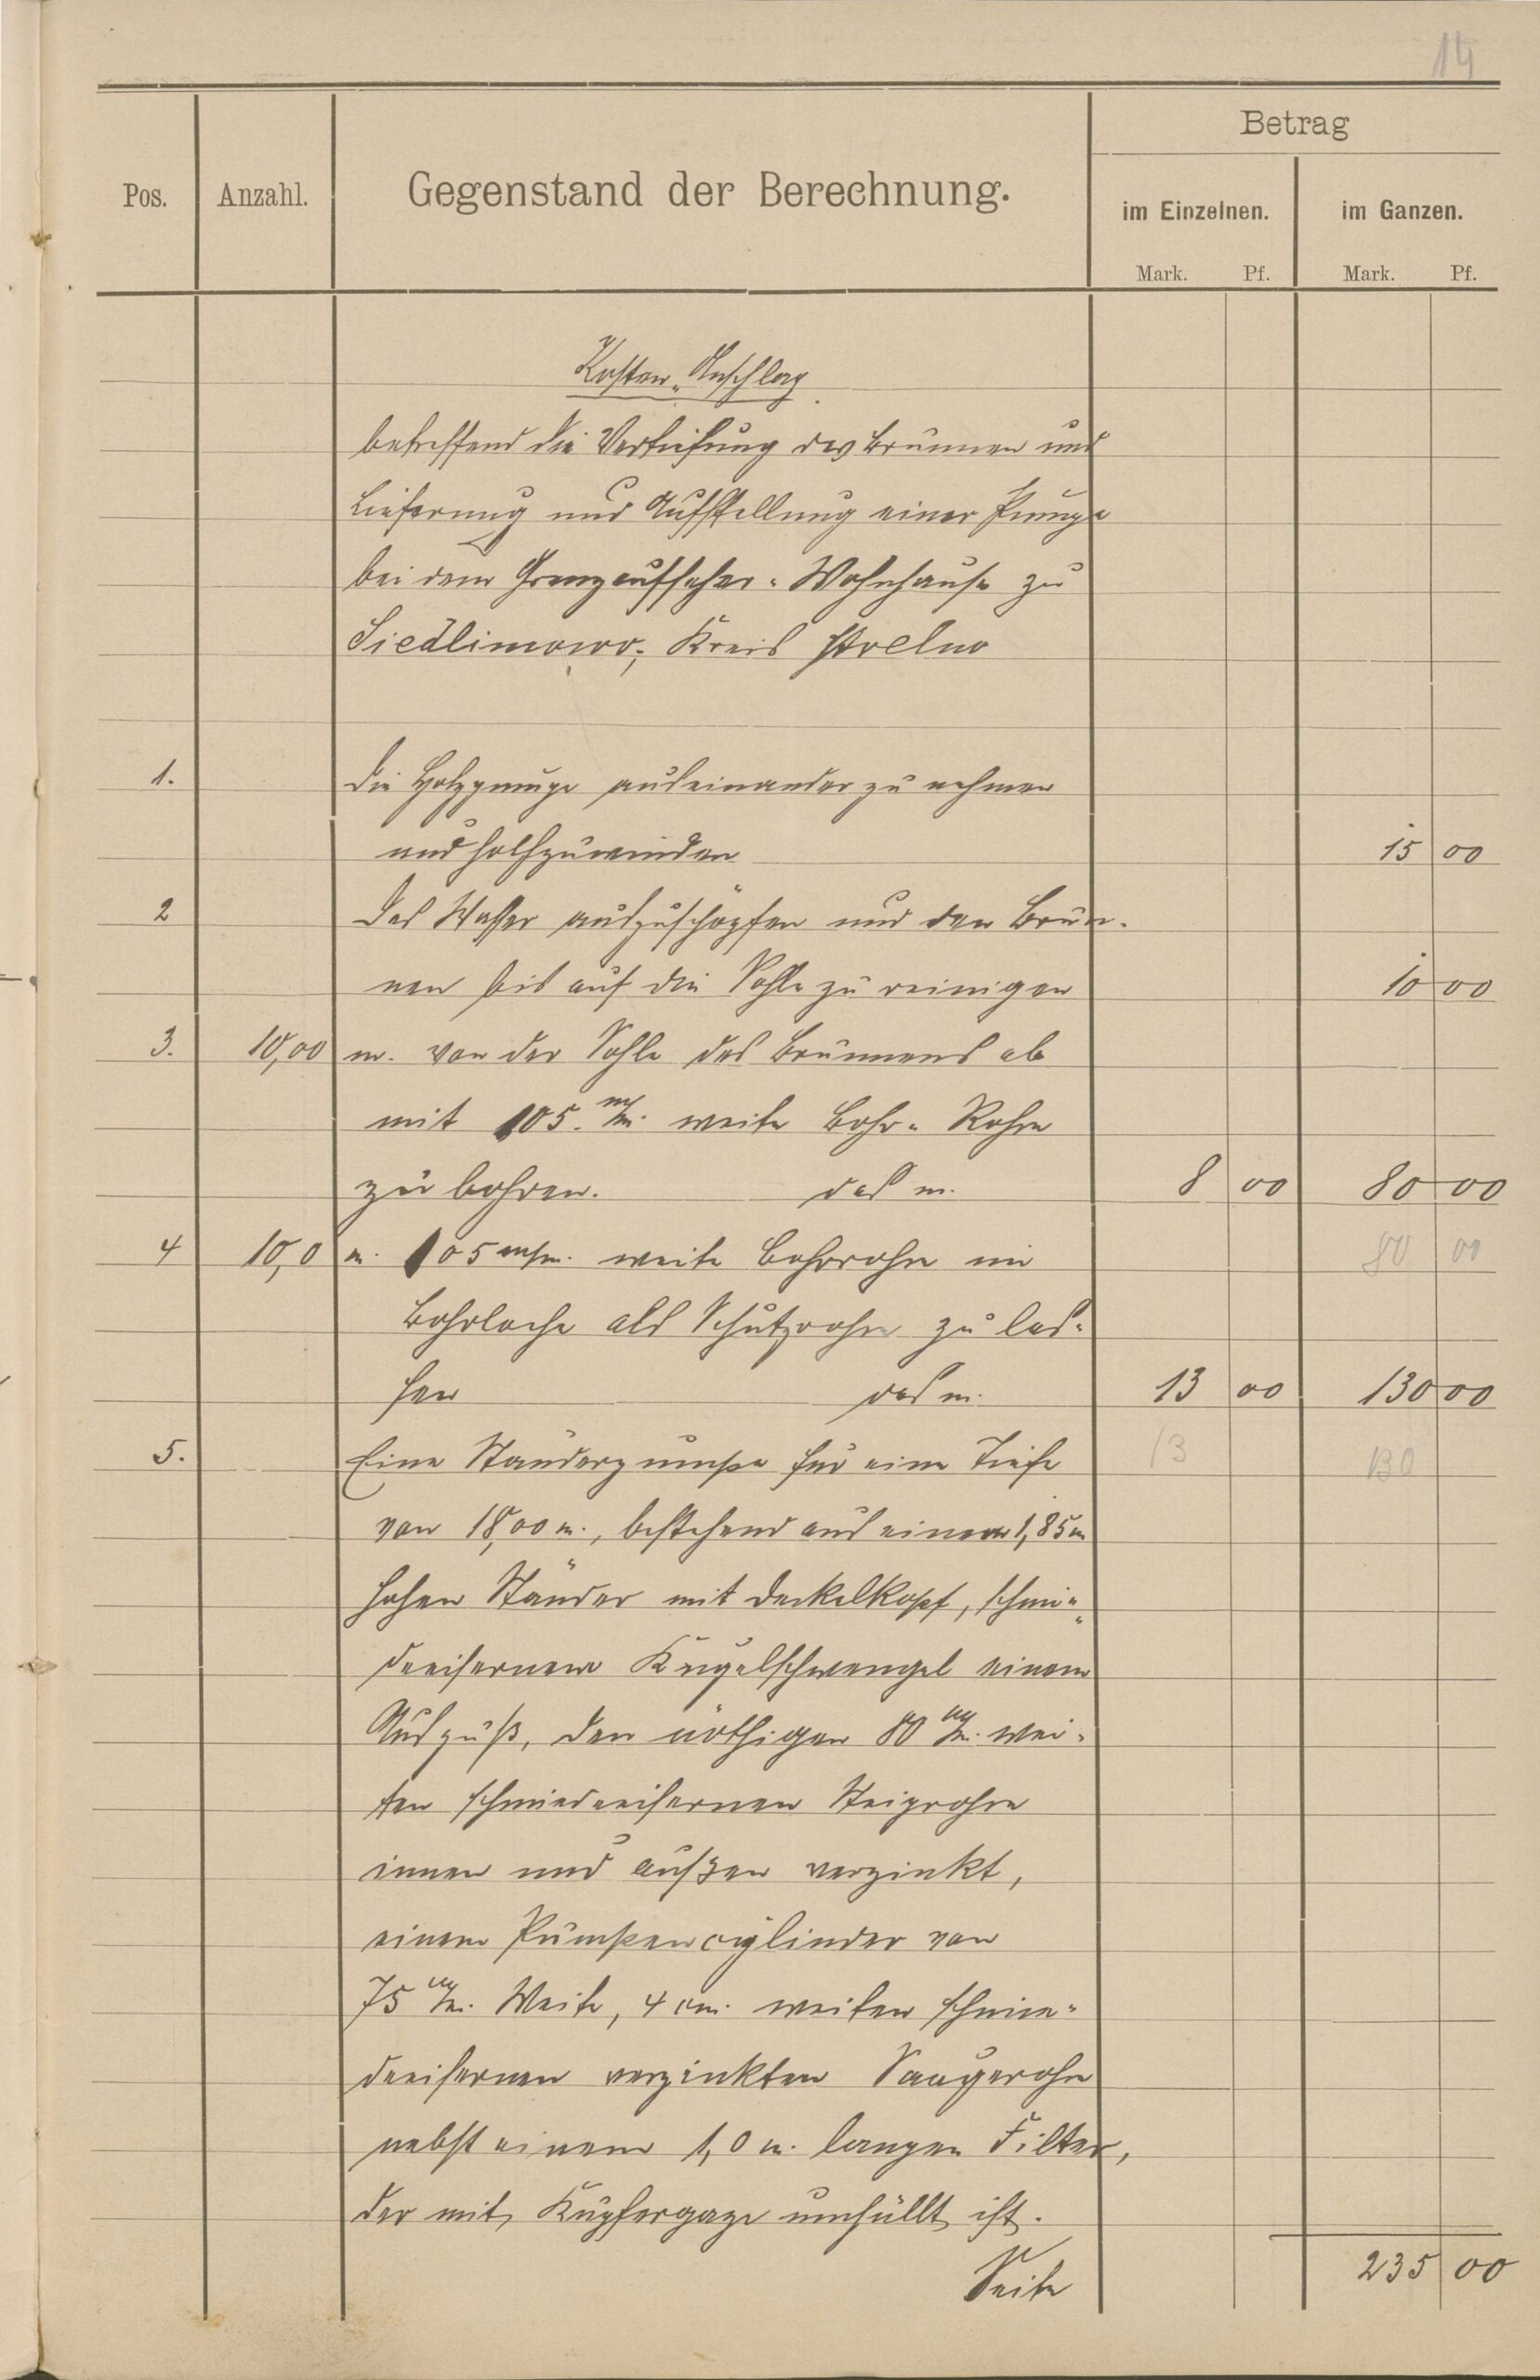 14
Betrag
Pos. Anzahl. Gegenstand der Berechnung. im Einzelnen. im Ganzen.
Mark. Pf. Mark. Pf.
Kosten-Anschlag
betreffend die Vertiefung des Brunnen und
Lieferung und Aufstellung einer Pumpe
bei dem Grenzaufseher-Wohnhause zu
Siedlimowo, Kreis Strelno
1. Die Holzpumpe auseinander zu nehmen
und 15 00
2 Das Wasser auszuschöpfen und den Brun-
nen bis auf die Sohle zu reinigen 10 00
3. 10,00 m. von der Sohle des Brunnens ab
mit 105. m/m. weite Bohr-Rohre
zu bohren. das m. 8 00 80 00
4 10,0 m. 105 m/m. weite Bohrrohre im 80 00
Bohrloche als Schutzrohre zu las-
sen das m. 13 00 130 00
5. Eine Ständerpumpe für eine Tiefe 13 130
von 18,00 m., bestehend aus einem 1,85 m
hohen Ständer mit Deckelkopf, schmie-
deeisernem Kugelschwengel einem
Ausguß, den nöthigen 80 m/m. wei-
ten schmiedeeisernen Steigrohre
innen und außen verzinkt,
einem Pumpencylinder von
75 m/m. Weite, 4 cm. weiten schmie-
deeisernen verzinkten Saugerohre
nebst einem 1,0 m. langen Filter,
der mit Kupfergaze umhüllt ist.
Seite 235 00